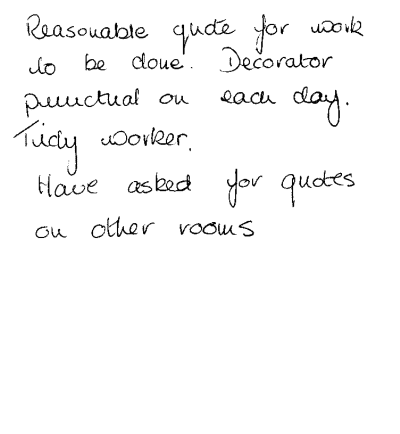 Reasonable quote for work
to be done. Decorator
punctual on each day.
Tidy worker.
Have asked for quotes
on other rooms